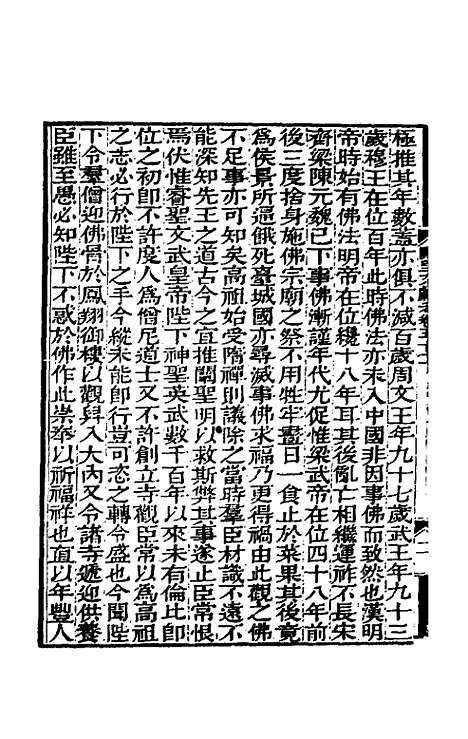 極推其年數蓋亦俱不減百歲周文王年九十七歲武王年九十三
歲穆王在位百年此時佛法亦未入中國非因事佛而致然也漢明
帝時始有佛法明帝在位纔十八年耳其後亂亡相繼運祚不長宋
齊梁陳元魏已下事佛漸謹年代尤促惟梁武帝在位四十八年前
後三度捨身施佛宗廟之祭不用牲牢晝日一食止於菜果其後竟
爲侯景所逼餓死臺城國亦尋滅事佛求福乃更得禍由此觀之佛
不足事亦可知矣高祖始受隋禪則議除之當時羣臣材識不遠不
能深知先王之道古今之宜推闡聖明以救斯弊其事遂止臣常恨
焉伏惟睿聖文武皇帝陛下神聖英武數千百年以來未有倫比即
位之初即不許度人爲僧尼道士又不許創立寺觀臣常以爲高祖
之志必行於陛下之手今縱未能即行豈可恣之轉令盛也今聞陛
下令羣僧迎佛骨於鳳翔御樓以觀舁入大內又令諸寺遞迎供養
臣雖至愚必知陛下不惑於佛作此崇奉以祈福祥也直以年豐人